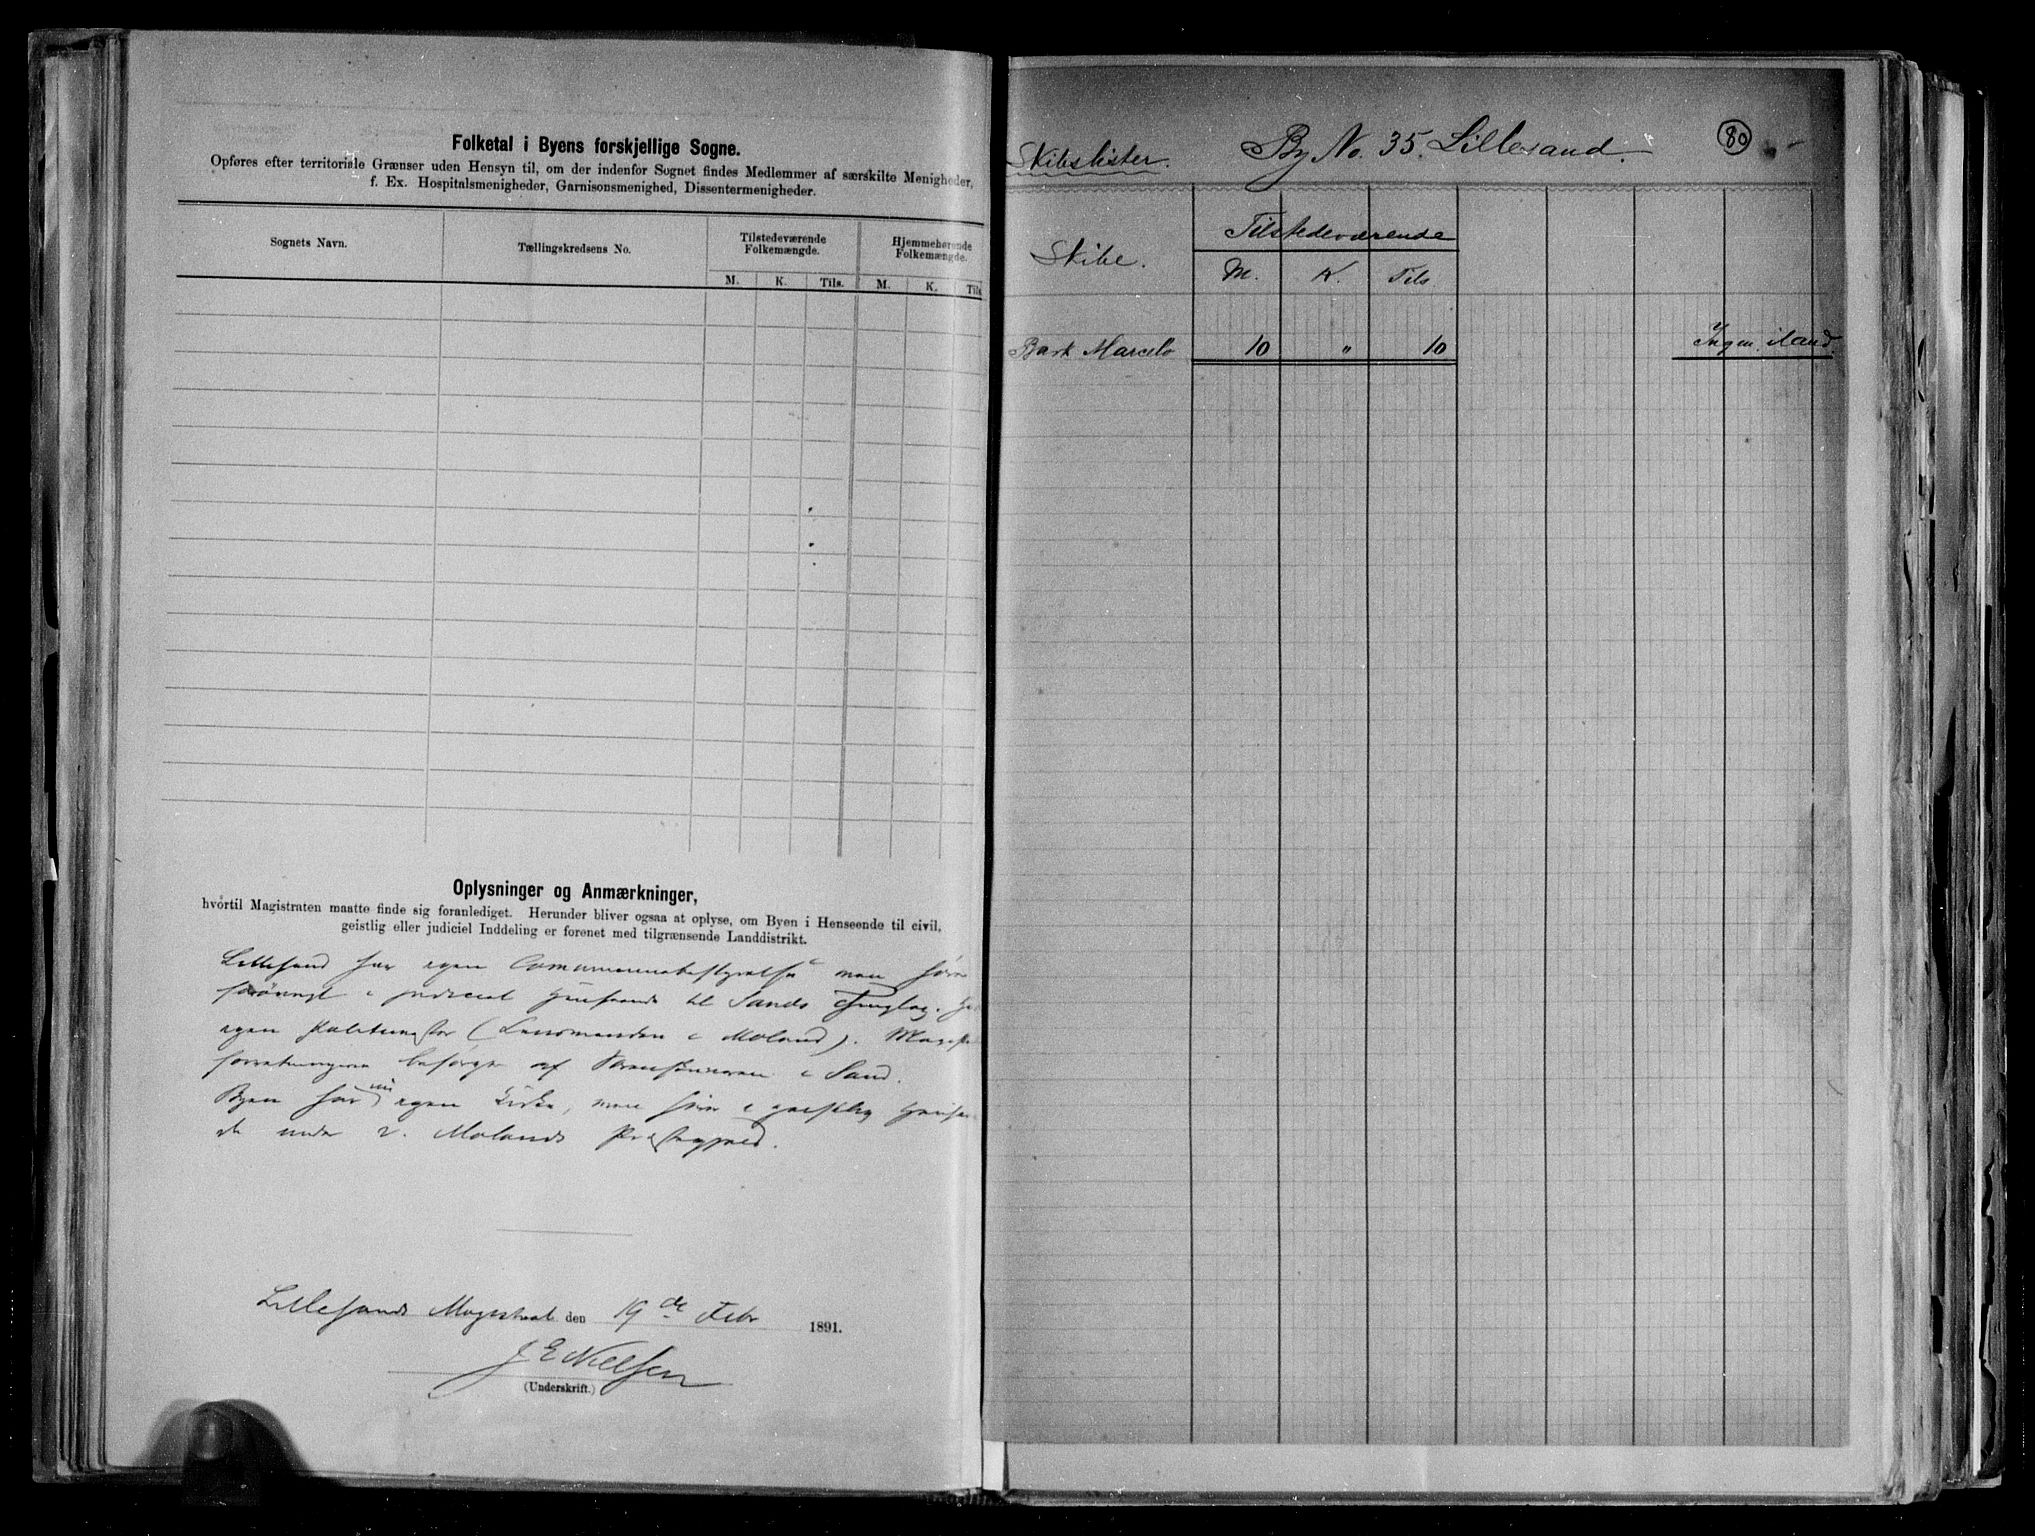 Folketal i Byens forskjellige Sogne.
Opføres efter territoriale Grænser uden Hensyn til, om der indenfor Sognet findes Medlemmer af særskilte Menigheder,
f. Ex. Hospitalsmenigheder, Garnisonsmenighed, Dissentermenigheder.
Sognets Navn.
Tællingskredsens No.
Tilstedeværende Folkemængde.
Hjemmehørende Folkemængde.
M. K. Tils. M. K. Tils
Oplysninger og Anmærkninger,
hvortil Magistraten maatte finde sig foranlediget. Herunder bliver ogsaa at oplyse, om Byen i Henseende til civil,
geistlig eller judiciel Inddeling er forenet med tilgrænsende Landdistrikt.
Lillesand har egen Communebestyrelse men hører
forøvrigt i judiciel Henseende til Sands Thinglag.
egen Politimester (Lensmanden i Moland).
forretningerne besørges af Sorenskriveren i Sand.
Byen har nu egen Kirke, men hører i geistlig
under V. Molands Præstegjeld.
Lillesands Magistrat den 19de Febr 1891.
J E Nielsen
(Underskrift.)
80
Skibslister. By No. 35. Lillesand.
Skibe.
Tilstedeværende
M. K. Tils
Bark Marcelo 10 " 10 Ingen iland.